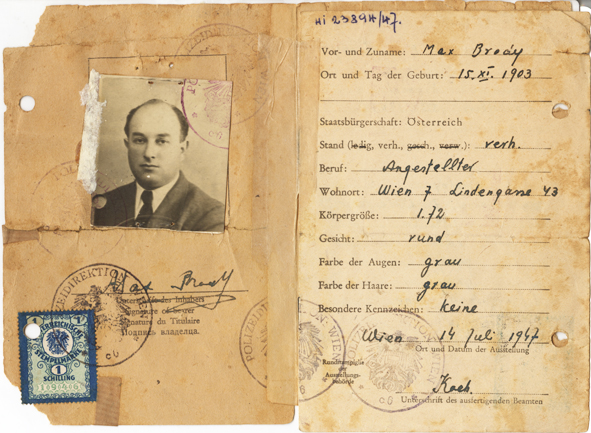 POLIZEIDIREKTION
Max Brody
Unterschrift des Inhabers
Signature of bearer
Signature du Titulaire
Подпись владельца.
1 1
ÖSTERREICHISCHE
STEMPELMARKE
1
SCHILLING
Hi 23894/47.
Vor- und Zuname: Max Brody
Ort und Tag der Geburt: 15.XI. 1903
Staatsbürgerschaft: Österreich
Stand (ledig, verh., gesch., verw.): verh.
Beruf: Angestellter
Wohnort: Wien 7 Lindengasse 43
Körpergröße: 1.72
Gesicht: rund
Farbe der Augen: grau
Farbe der Haare: grau
Besondere Kennzeichen: keine
Wien 14 Juli 1947
Ort und Datum der Ausstellung
Rundstampiglie
der
Ausstellungs-
behörde
Koch.
Unterschrift des ausfertigenden Beamten